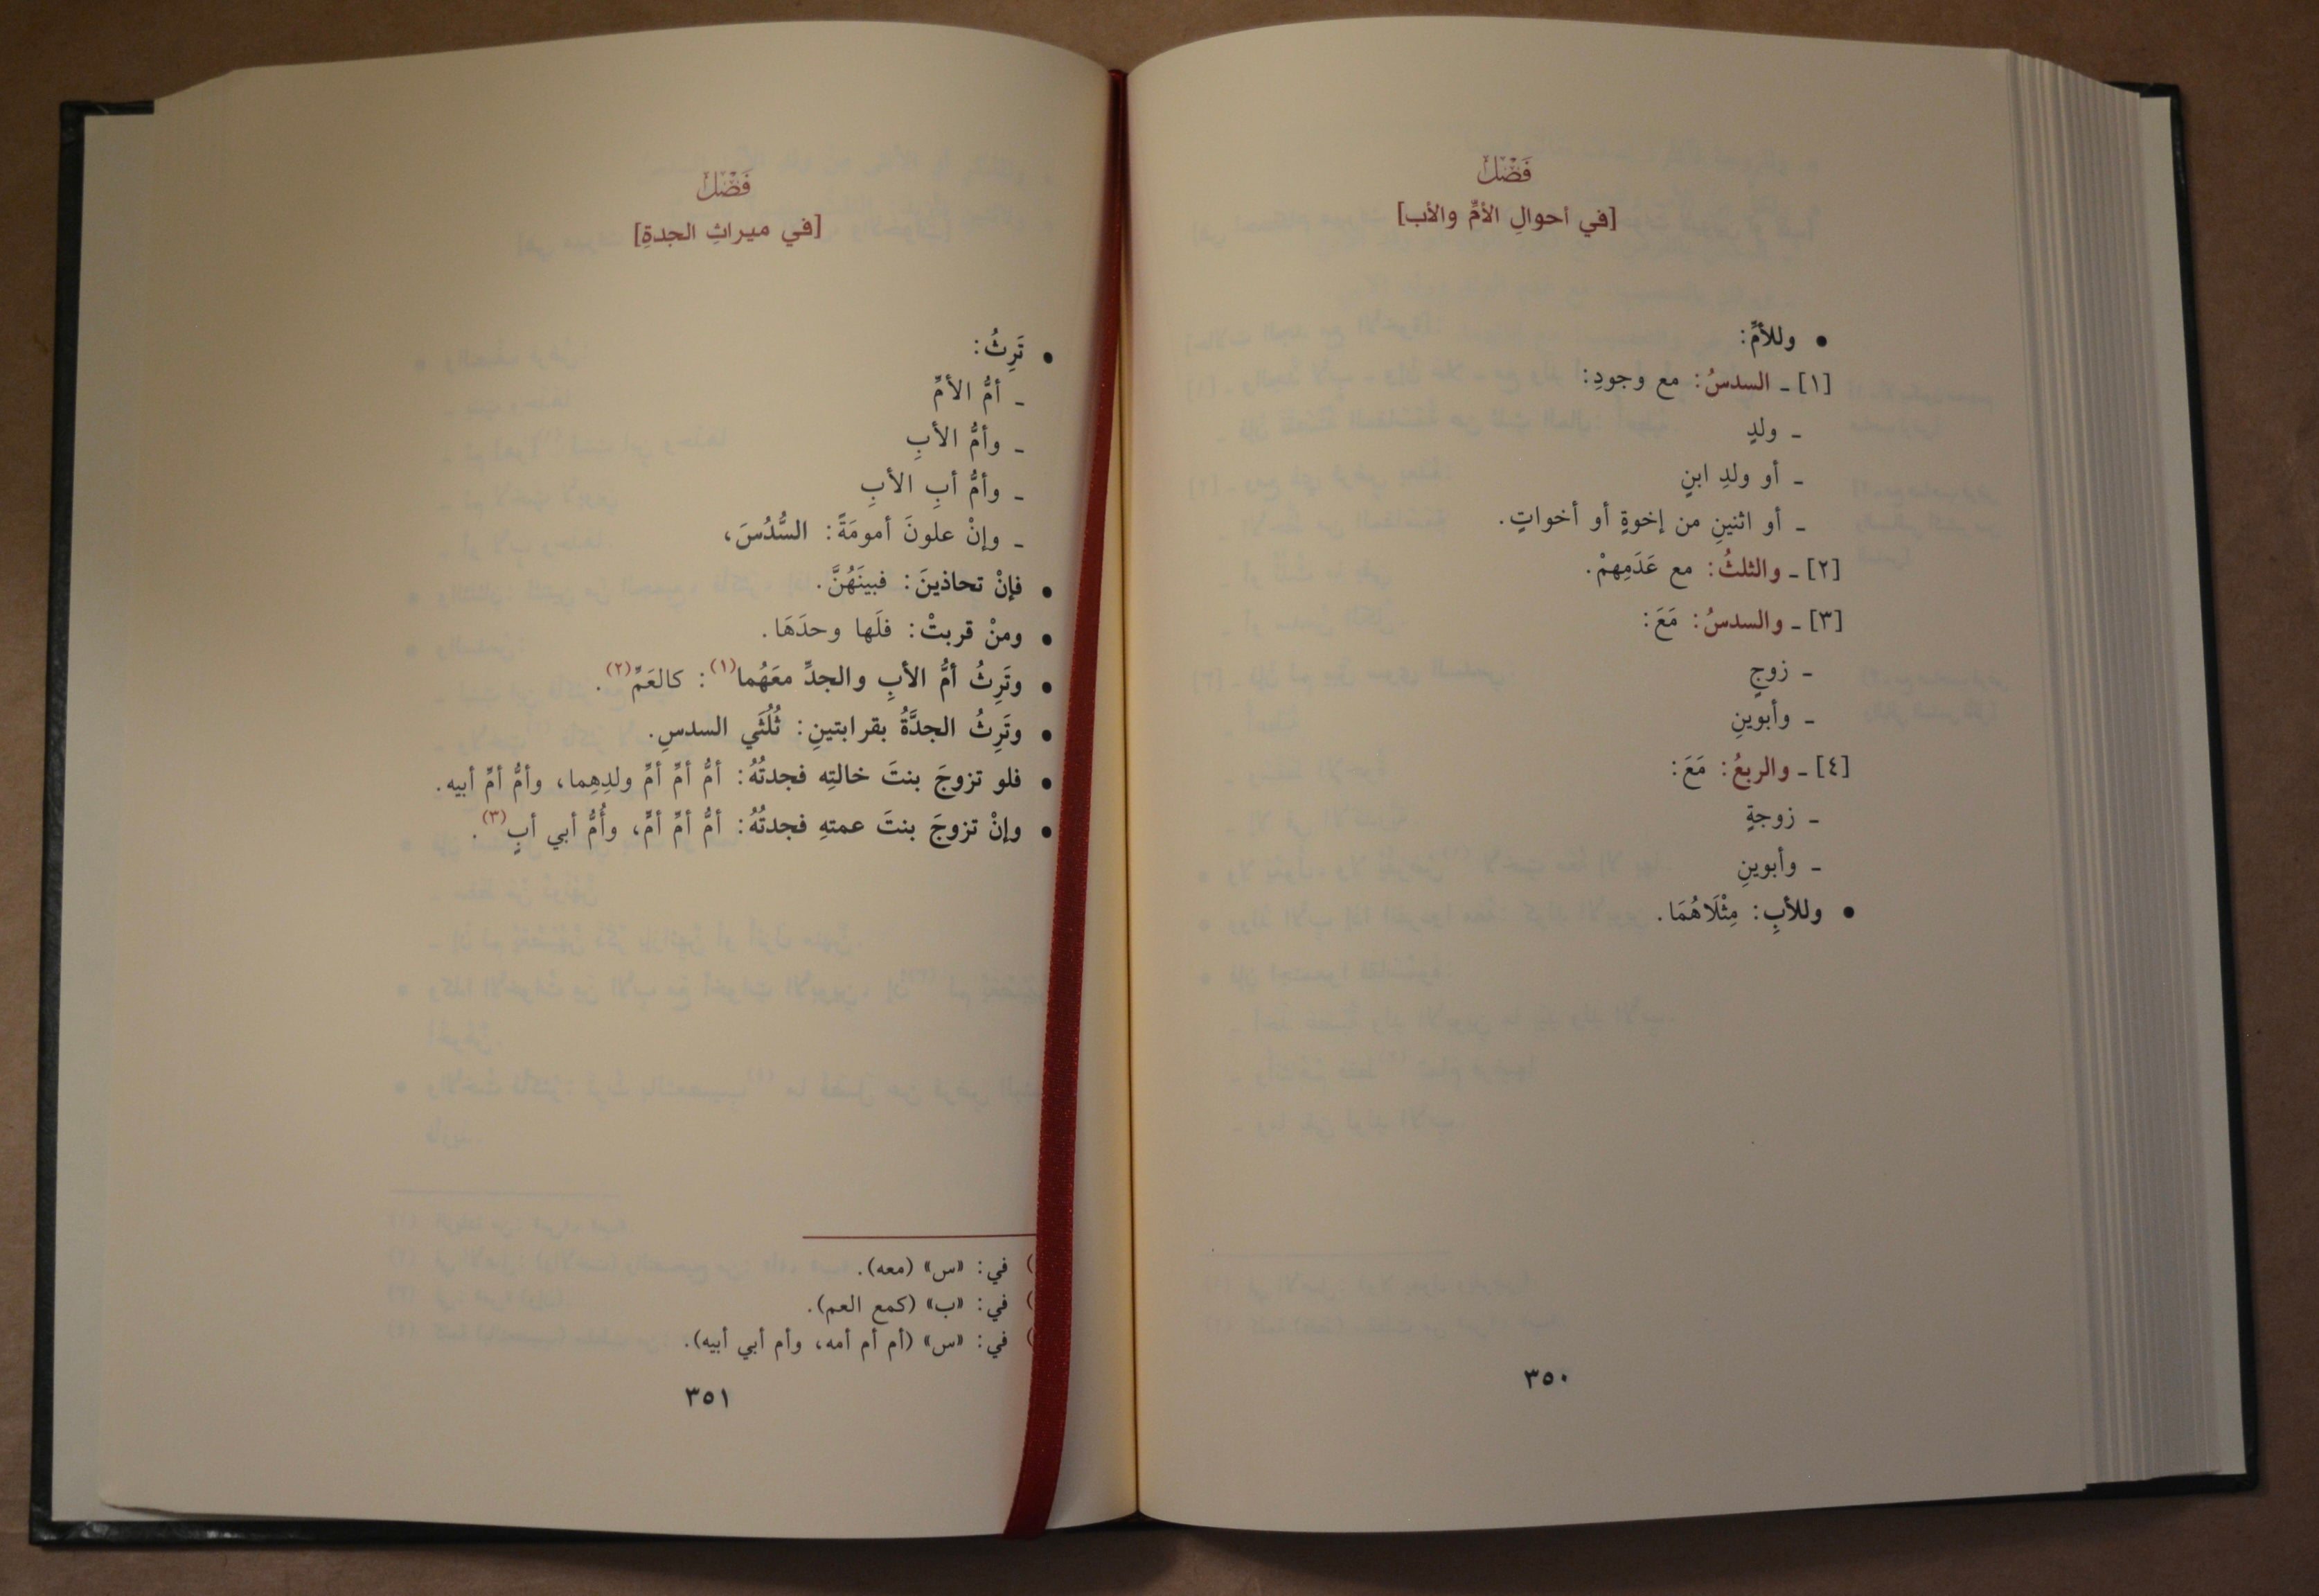 فَصْلٌ
[في أحوالِ الأمِّ والأب]
• وللأمِّ:
[١] ـ السدسُ: مع وجودِ:
ـ ولدٍ
ـ أو ولدِ ابنٍ
ـ أو اثنينِ من إخوةٍ أو أخواتٍ.
[٢] ـ والثلثُ: مع عَدَمِهِمْ.
[٣] ـ والسدسُ: مَعَ:
ـ زوجٍ
ـ وأبوينِ
[٤] ـ والربعُ: مَعَ:
ـ زوجةٍ
ـ وأبوينِ
• وللأبِ: مِثْلَاهُمَا.
٣٥٠
فَصْلٌ
[في ميراثِ الجدةِ]
• تَرِثُ:
ـ أمُّ الأمِّ
ـ وأمُّ الأبِ
ـ وأمُّ أبِ الأبِ
ـ وإنْ علونَ أمومَةً: السُّدُسَ،
• فإنْ تحاذينَ: فبينَهُنَّ.
• ومنْ قربتْ: فلَها وحدَهَا.
• وتَرِثُ أمُّ الأبِ والجدِّ معَهُما(١): كالعَمِّ(٢).
• وتَرِثُ الجدَّةُ بقرابتينِ: ثُلُثَي السدسِ.
• فلو تزوجَ بنتَ خالتِه فجدتُهُ: أمُّ أمِّ أمِّ ولدِهِما، وأمُّ أمِّ أبيه.
• وإنْ تزوجَ بنتَ عمتهِ فجدتُهُ: أمُّ أمِّ أمٍّ، وأُمُّ أبي أبٍ(٣).
) في: «س» (معه).
) في: «ب» (كمع العم).
) في: «س» (أم أم أمه، وأم أبي أبيه).
٣٥١